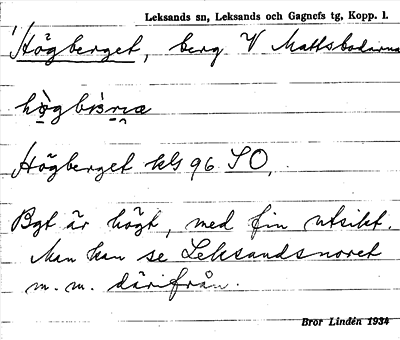 Leksands sn, Leksands och Gagnefs tg, Kopp. l.
Högberget, berg V Mattsbodarna
Högberget kbl 96 SO.
Bgt är högt, med fin utsikt.
Man kan se Leksandsnoret
m. m. därifrån.
Bror Lindén 1934